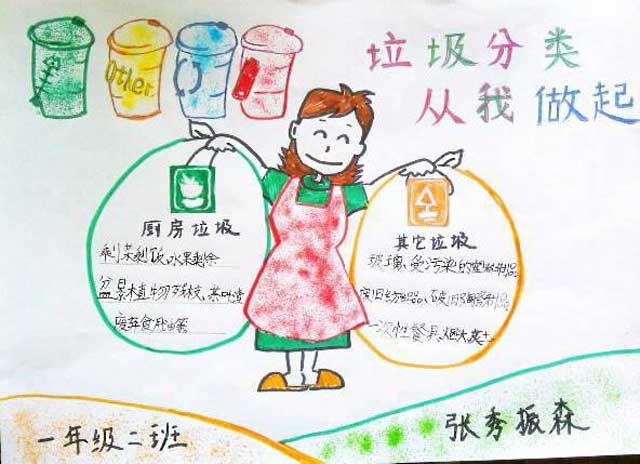 Other
垃圾分类
从我做起
厨房垃圾
剩菜剩饭、水果剩余
盆景植物残枝、茶叶渣
废弃食用油等
其它垃圾
玻璃、受污染的塑料制品
一次性餐具、烟头、灰土
一年级二班
张秀振森